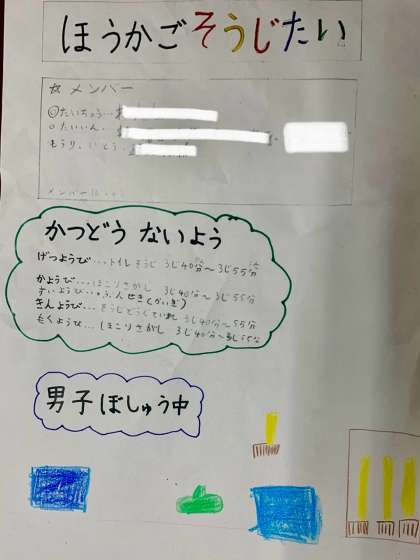 ほうかごそうじたい
☆メンバー
◎たいちょう…
○たいいん…
メンバー
かつどう ないよう
げつようび…トイレそうじ 3じ40分～3じ55分
かようび…ほこりさがし 3じ40分～3じ55分
すいようび…ふんせき(かいぎ)
きんようび…そうじどうぐていれ 3じ40分～55分
もくようび…ほこりさがし 3じ40分～3じ55分
男子ぼしゅう中